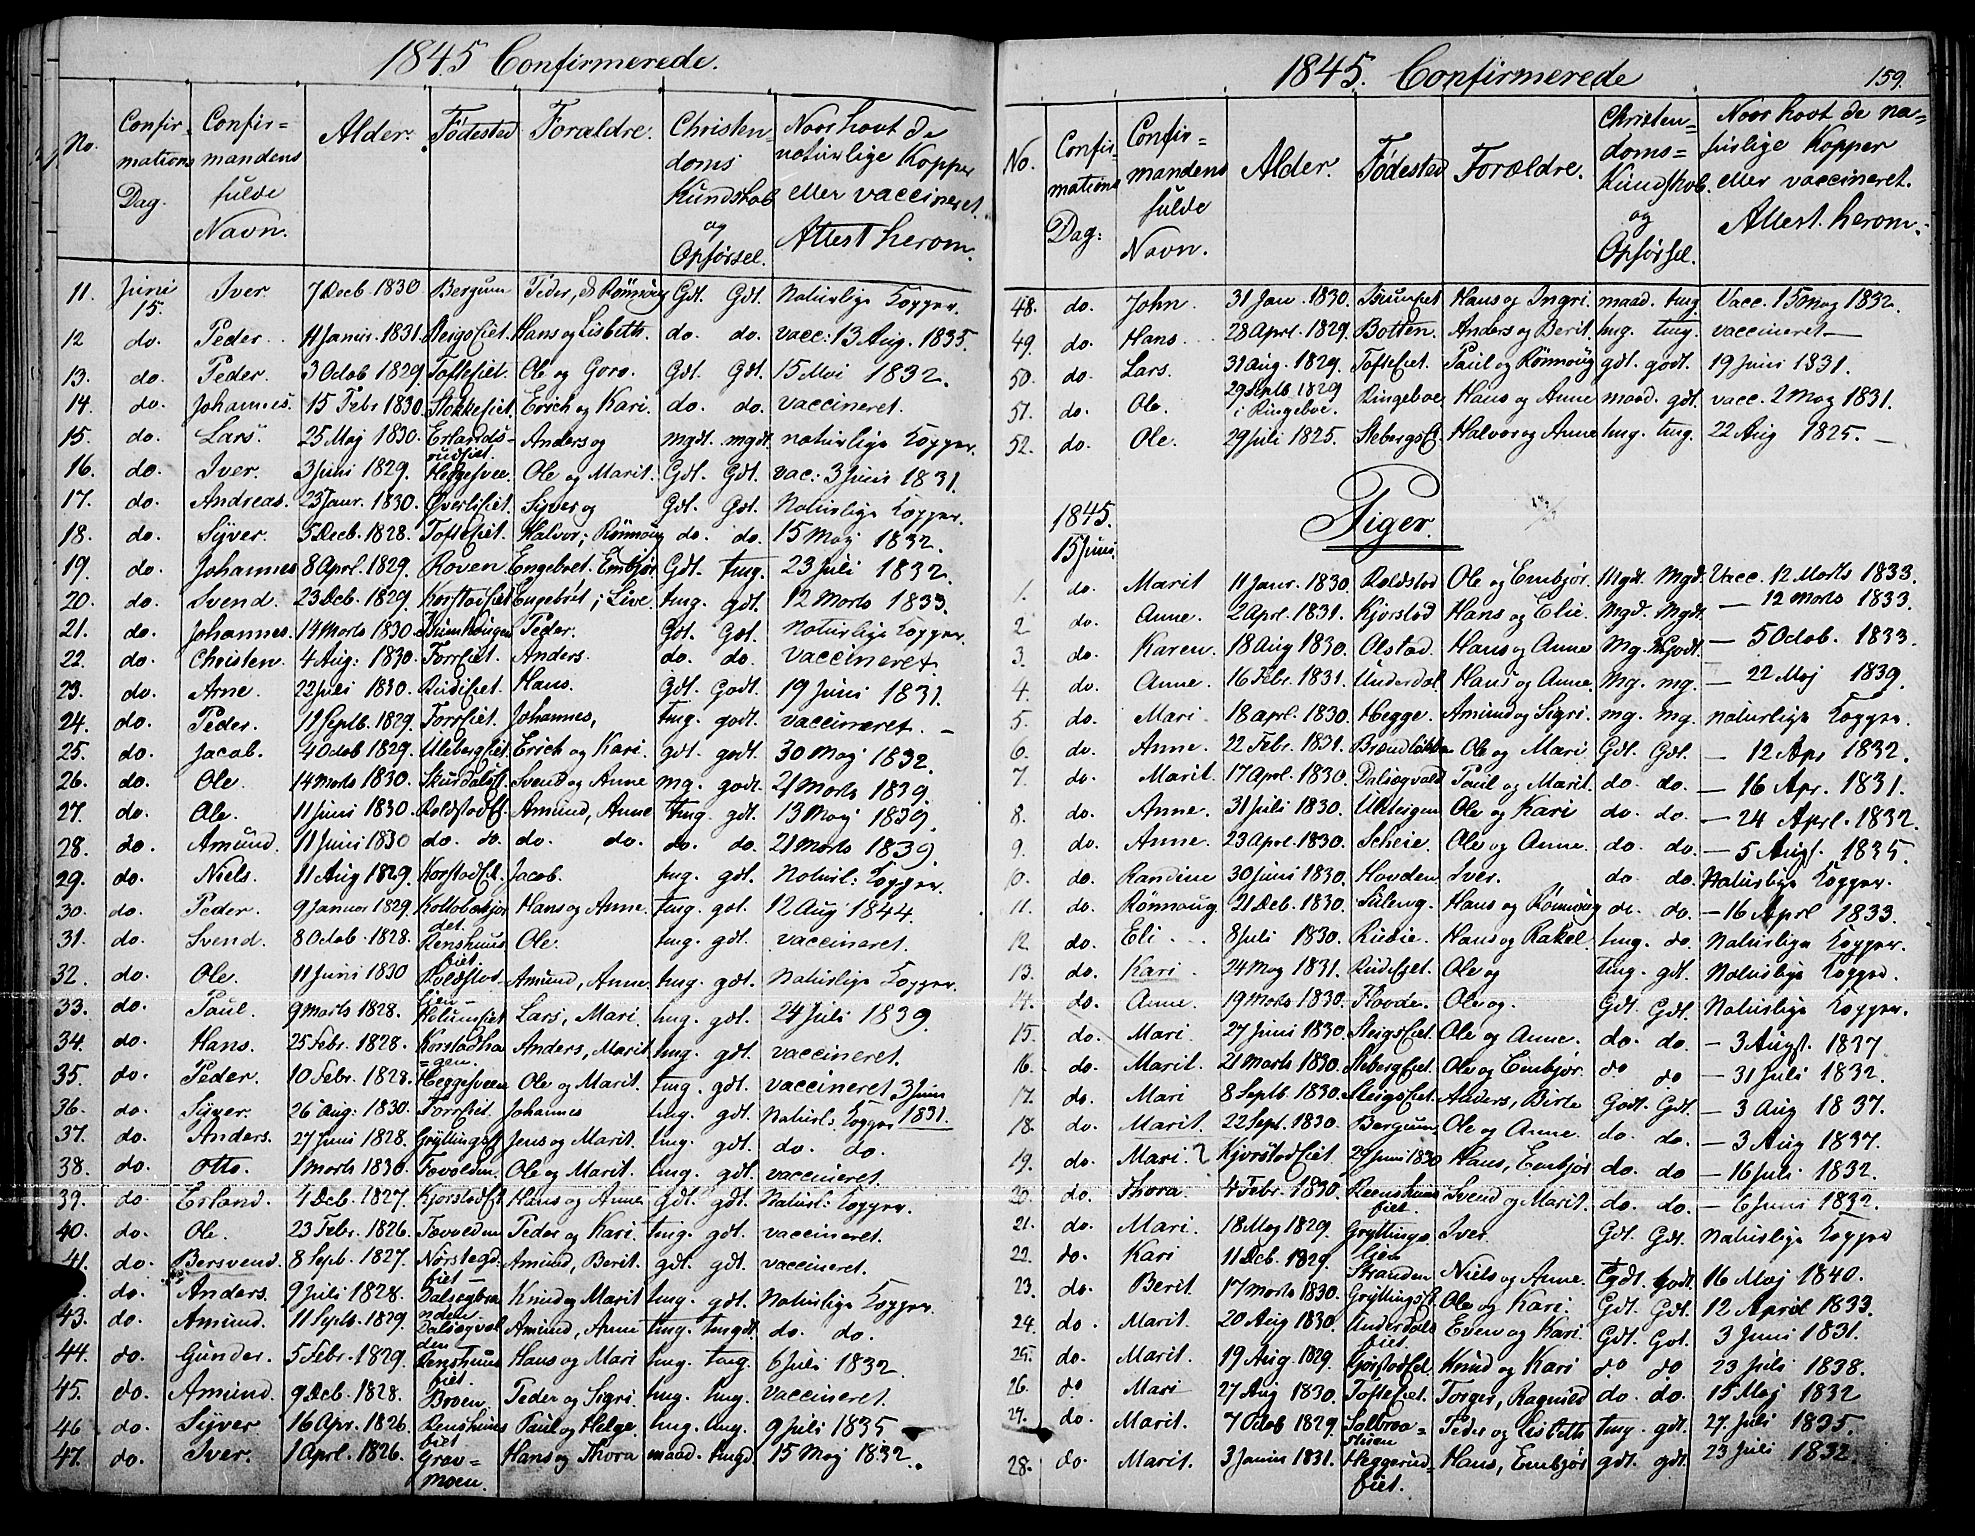 1845 Confirmerede.
No. Confirmations Dag. Confirmandens fulde Navn. Alder. Fødested Forældre. Christendoms Kundskab og Opførsel. Naar havt de naturlige Kopper eller vaccineret. Attest herom.
11. Juni 15. Iver. 7 Decb. 1830 Bergum Peder, Gdt. Gdt. Naturlige Kopper.
12 do. Peder. 11 Januar 1831. Steigsfiet. Hans og Lisbeth. do. do. vacc: 13 Aug. 1835.
13. do. Peder. 3 Octob 1829. Toftefiet. Ole og Goro. Gdt. Gdt. 15 Mai 1832.
14. do. Johannes. 15 Febr 1830. Stokkefiet. Erich og Kari. do. do. vaccineret.
15. do. Lars. 25 Maj 1830. Erlandsrudfiet. Anders og mgdt. mgdt. naturlige Kopper.
16. do. Iver. 3 Juni 1829. Heggesvee. Ole og Marit. Gdt. Gdt. vac: 3 Juni 1831.
17. do. Andreas. 23 Janr. 1830. Øverlifiet. Syver og Gdt. Gdt. Naturlige Kopper.
18. do. Syver. 5 Decb. 1828. Toftefiet. Halvor; Rønnoug do. do. 15 Maj 1832.
19. do. Johannes 8 Aprl. 1829. Roven Engebret. Embjør Gdt. tmg. 23 Juli 1832.
20. do. Svend. 23 Dcb. 1829. Korstadfiet Engebret; Live. tmg. gdt. 12 Marts 1833.
21. do. Johannes. 14 Marts 1830. Peder. Gdt. Gdt. Naturlige Kopper.
22. do. Christen. 4 Aug: 1830. Forrfiet. Anders. do. do. vaccineret.
23. do. Arne. 22 Juli 1830. Rudifiet. Hans. Gdt. Godt. 19 Juni 1831.
24. do. Peder. 19 Septb. 1829. Forrfiet. Johannes, tmg. godt. vaccineret. -
25. do. Jacob. 4 Octob 1829. Ulebergfiet. Erich og Kari. gdt. godt. 30 Maj 1832.
26. do. Ole. 14 Marts 1830. Svend og Anne mg. godt. 21 Marts 1839.
27. do. Ole. 11 Juni 1830. Roldstadf. Amund, Anne tmg. gdt. 13 Maj 1839.
28. do. Amund. 11 Juni 1830 do. do. do. do. do. do. 21 Marts 1839.
29. do. Niels. 11 Aug 1829. Korstadfiet. Jacob. tmg. gdt. Naturl: Kopper.
30. do. Peder. 9 Januar 1829. Hans og Anne. tmg. gdt. 12 Aug 1844.
31. do. Svend. 8 Octob. 1828. Renshuusfiet. Ole. tmg. gdt. vaccineret.
32. do. Ole. 11 Juni 1830 Roldstad- Amund, Anne tmg. gdt. Naturlige Kopper.
33. do. Paul. 9 Marts 1828. Holumsfiet Lars, Mari. tmg. gdt. 24 Juli 1839.
34. do. Hans. 25 Febr. 1828. Korstadhagen. Anders, Marit tmg. gdt. vaccineret.
35. do. Peder. 10 Febr. 1828. Heggesveen Ole og Marit. tmg. gdt. vaccineret 3 Juni 1831.
36. do. Syver. 26 Aug: 1830. Forrfiet. Johannes tmg. gdt. Naturl: Kopper
37. do. Anders. 27 Juni 1828. Gryttingsf. Jens og Marit. tmg. gdt. do. do.
38. do. Otto. 1 Marts 1830. Ole og Marit. tmg. gdt. vaccineret.
39. do Erland. 4 Dcb. 1827. Kjorstadfit Hans og Anne gdt. gdt. Naturl: Kopper.
40. do. Ole. 23 Febr. 1826. Peder og Kari. tmg. gdt. vaccineret.
41. do. Bersvend. 8 Sepb. 1827. Nørstegdfiet Amund, Berit. gdt. gdt. vaccineret.
do. Anders. 9 Juli 1828. Knud og Marit tmg. gdt. Naturlige Kopper.
43. do. Amund. 11 Septb. 1829. Dalsegvolden Amund, Anne tmg. tmgdt. do. do.
44. do. Gunder. 5 Febr. 1829. Renshuusfiet. Hans og Mari tmg. tmg. 6 Juli 1832.
45. do. Amund. 9 Dcb. 1828. Broen. Peder og Sigri. tmg. tmg. vaccineret.
46 do. Syver 16 Apr. 1826. Renshuusfiet Paul og Helge. tmg. tmg. 9 Juli 1835
47. do. Iver. 1 Aprl. 1826. Gravmoen. Hans og Thora maad. tmgd. 15 Maj 1832.
1845. Confirmerede
159.
No. Confirmations Dag: Confirmandens fulde Navn. Alder. Fødested Forældre. Christendoms Kundskab. og Opførsel. Naar havt de naturlige Kopper eller vaccineret. Attest. herom.
48. do. John. 31 Jan. 1830. Hans og Ingri. maad. tmg. Vacc. 15 Maj 1832.
49. do. Hans. 28 Aprl. 1829. Botten. Anders og Berit. tmg. tmg. vaccineret
50. do. Lars. 31 Aug. 1829. Toftefiet. Paul og Rønnoug gdt. godt. 19 Juni 1831.
51. do. Ole. 29 Septb. 1829 i Ringeboe. Ringeboe Hans og Anne maad. gdt. vacc. 2 Maj 1831.
52. do. Ole. 29 Juli 1825. Stebergsf. Halvor og Anne tmg. tmg. 22 Aug 1825. -
Piger.
1845. 15 Juni.
1. do. Marit 11 Janr. 1830. Roldstad Ole og Embjør. Mgdt. Mgd. Vacc. 12 Marts 1833.
2 do. Anne. 2 Aprl. 1831. Kjorstad Hans og Elie. Mgd. Mgdt. — 12 Marts 1833.
3. do. Karen. 18 Aug 1830. Olstad. Hans og Anne — 5 Octob. 1833.
4. do. Anne. 16 Febr. 1831. Underdal Hans og Anne. Mg. mg. — 22 Maj 1839.
5. do. Mari 18 aprl. 1830. Hegge. Amund og Sigri. mg. mg. naturlige Kopper.
6. do. Anne. 22 Febr. 1831. Brændløkke Ole og Mari Gdt. Gdt. — 12 Apr 1832.
7. do. Marit. 17 Aprl. 1830. Dalsegvold Paul og Marit. do. do. — 16 Apr. 1831.
8. do. Anne. 31 Juli 1830. Ulsteigen Ole og Kari do. do. — 24 Aprl. 1832.
9. do. Anne. 23 Aprl. 1830. Scheie. Ole og Anne. do. do. — 5 Augt. 1835.
10. do. Randine 30 Juni 1830. Hovden Iver. do. do. Naturlige Kopper.
11. do. Rønnoug 21 Dcb. 1830. Suleng. Hans og Rønnoug do. do. — 16 Aprl 1833.
12. do. Eli 8 Juli 1830. Rudie. Hans og Rakel tmg. do. Naturlige Kopper.
13. do. Kari. 24 Maj 1831. Rudefjet. Ole og tmg. gdt. Naturlige Kopper.
14. do. Anne 19 Marts 1830. Ole og. Gdt. Gdt. Naturlige Kopper.
15. do. Mari. 27 Juni 1830. Steigsfiet. Ole og Anne. do. do. — 3 Augt. 1837
16. do. Marit. 21 Marts 1830. Stebergfiet. Ole og Embjør. do do — 31 Juli 1832.
17. do. Mari 8 Septb. 1830. Steigsfiet. Anders, Birte Godt. Gdt. — 3 Aug 1837.
18. do. Marit. 22 Sept. 1830. Bergum Ole og Anne. do. do. — 3 Aug 1837.
19. do. Mari. Kjorstadfiet 29 Juni 1830 Hans, Embjør do. do — 16 Juli 1832.
20. do. Thora. 4 Febr. 1830. Reenshuusfiet. Svend og Marit. do. do. — 6 Juni 1832.
21. do. Mari. 18 Maj 1829. Gryttingslien Iver. Gdt. Gdt. Naturlige Kopper
22. do. Kari 11 Dcb. 1829. Stranden Niels og Anne. gdt. godt. 16 Maj 1840.
23. do. Berit. 17 Marts 1830. Gryttingsf. Ole og Kari. Gdt. Gdt. 12 April 1833.
24. do. Marit. 20 Aug 1830. Underdalsfiet. Even og Kari. Gdt. Gdt. 3 Juni 1831.
25. do. Marit. 19 Aug. 1829. Kjorstadfiet. Knud og Kari do do 23 Juli 1838.
26. do Mari 27 Aug 1830. Toftefiet. Torger, Ragnild do. do. 15 Maj 1832
27. do. Marit. 7 Octob 1829. Peder og Lisbeth tmg. gdt. 27 Juli 1835.
28. do. Marit. 3 Januar 1831. Heggerudfiet. Hans, Embjør gdt. gdt. 23 Juli 1832.